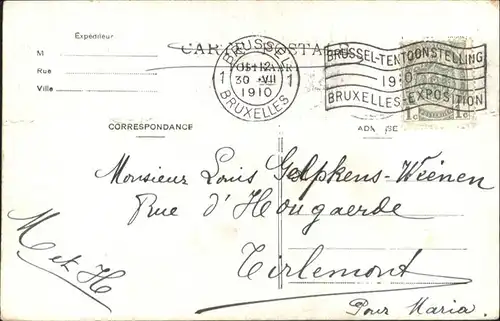 Expéditeur
M
Rue
Ville
CARTE POSTALE
BRUSSEL
1 30 VII 1
1910
BRUXELLES
BRUSSEL-TENTOONSTELLING
1910
BRUXELLES-EXPOSITION
1c 1c
CORRESPONDANCE
ADRESSE
Monsieur Louis Gelpkens-Weenen
Rue d'Hougaerde
Tirlemont
Pour Maria.
M et H